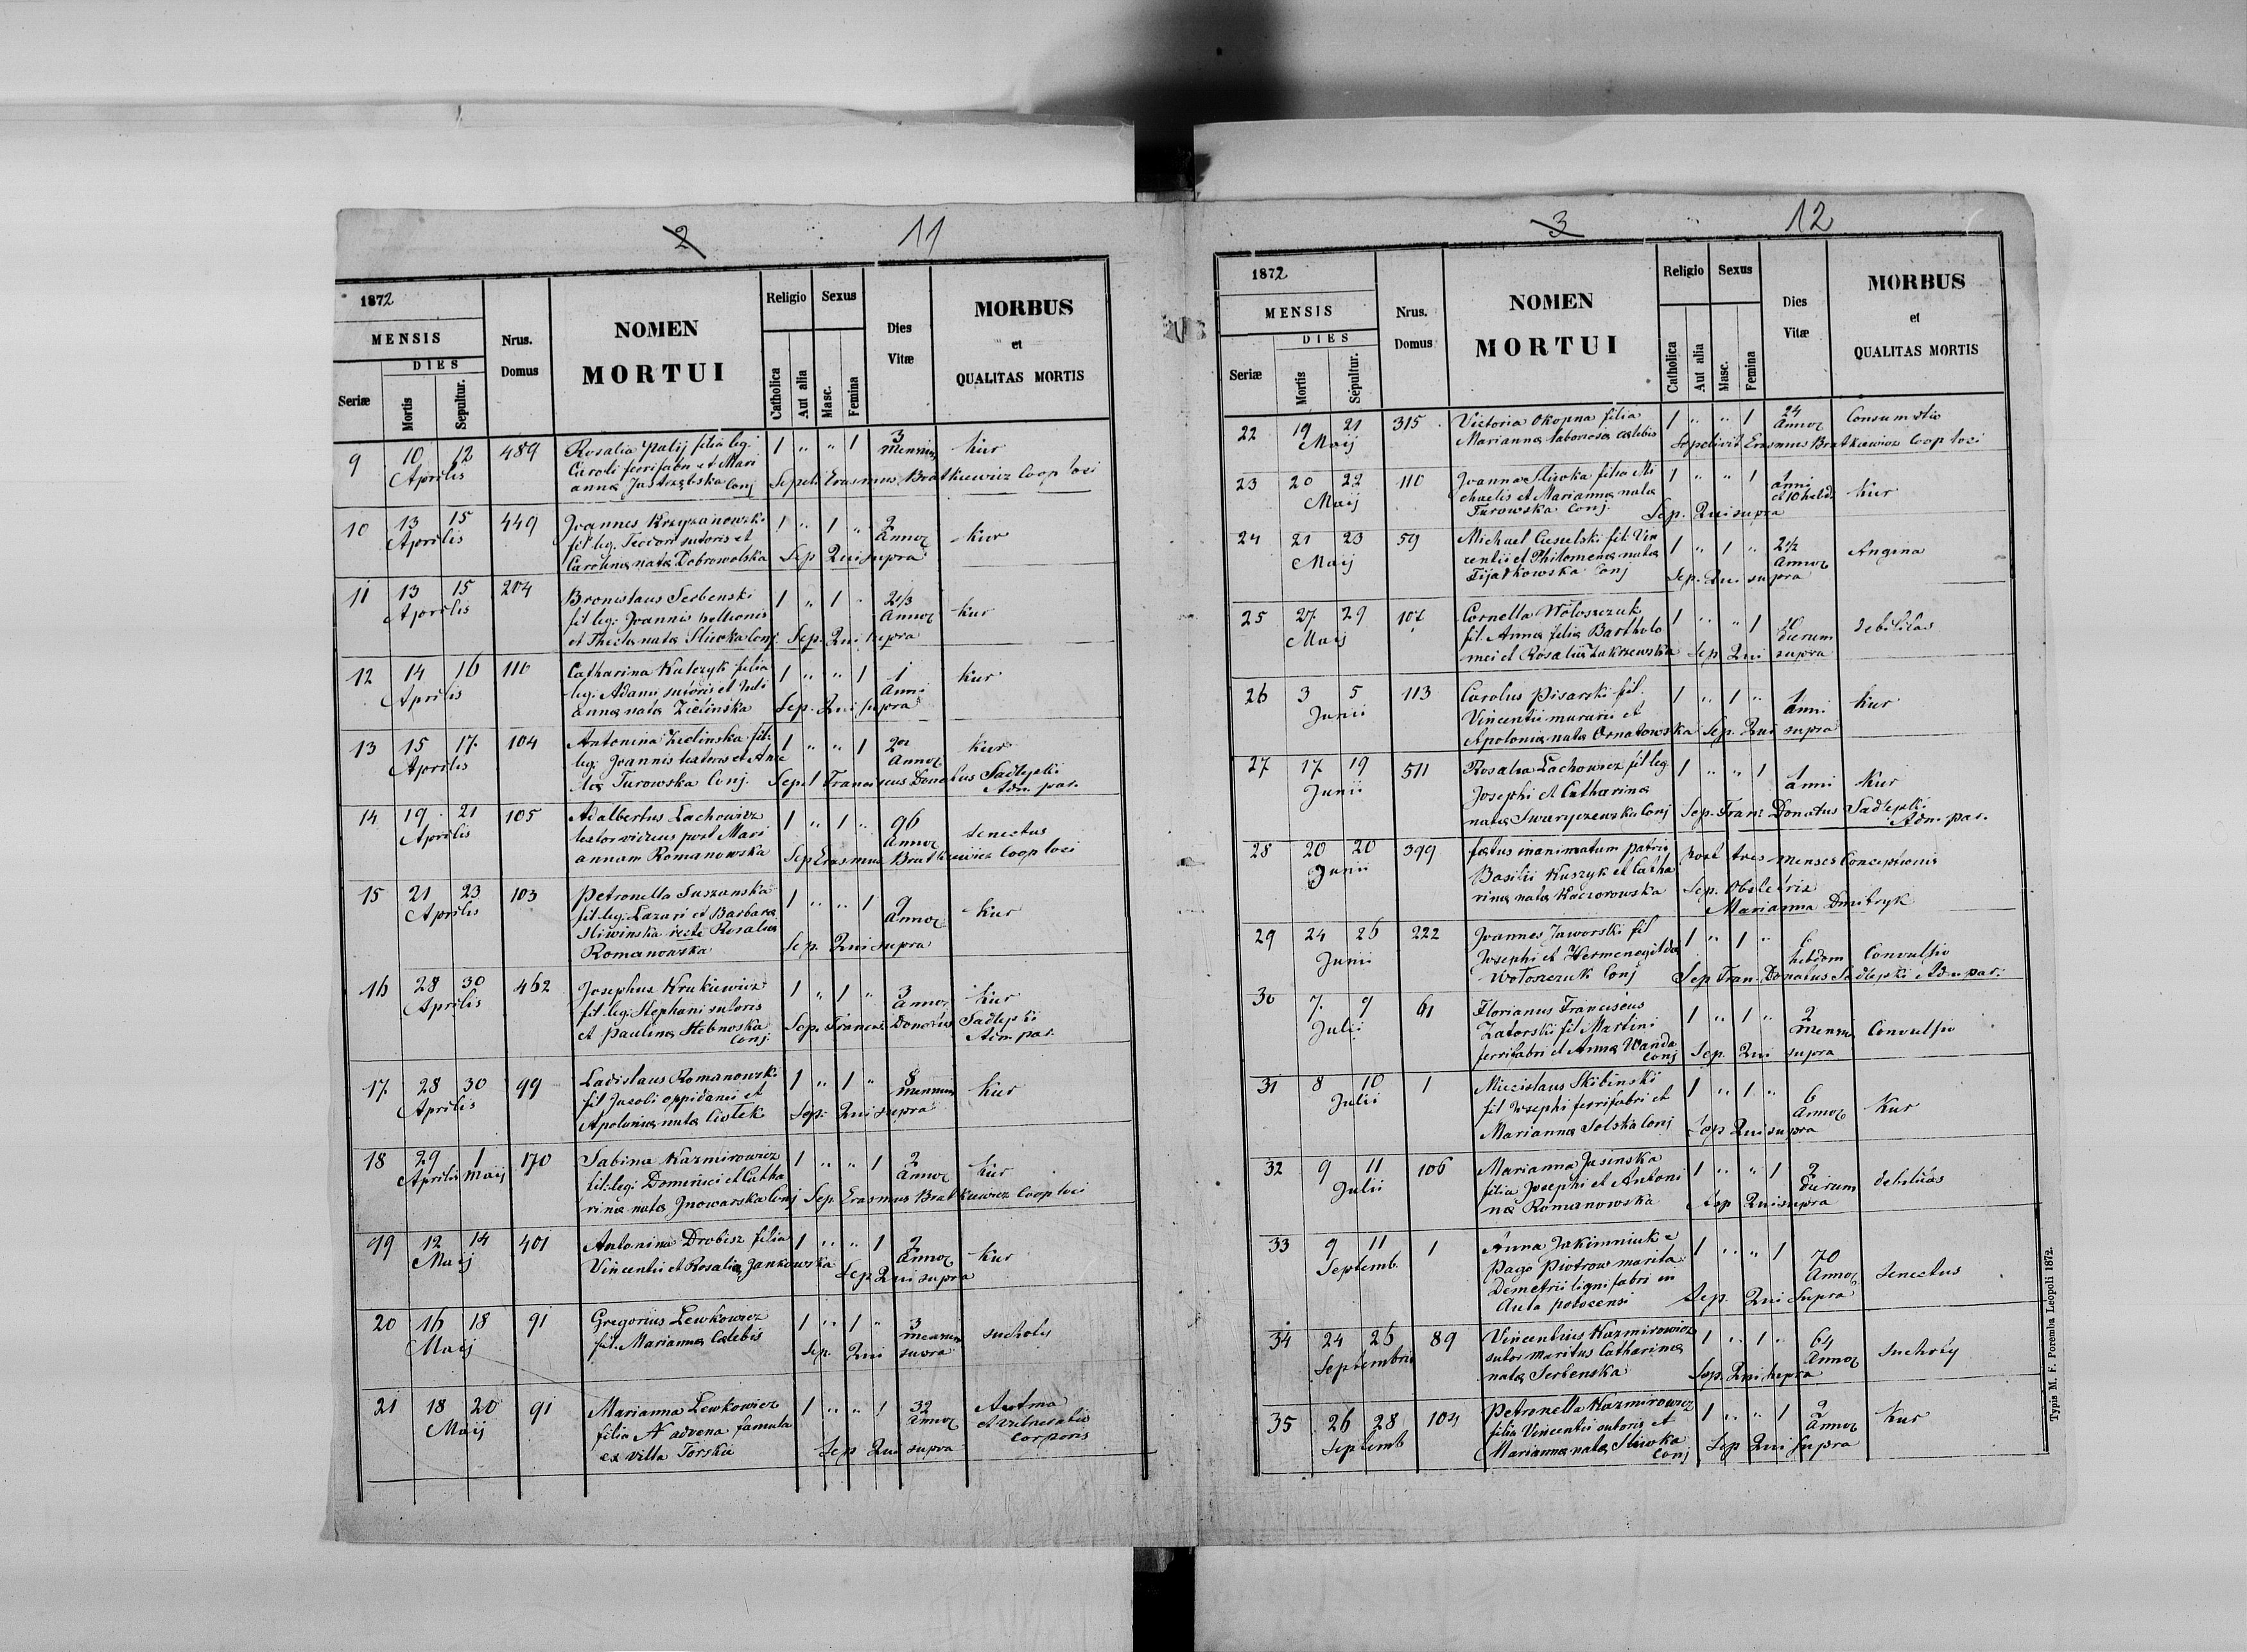 2 11
1872
MENSIS
DIES
Seriæ Mortis Sepultur.
Nrus. Domus
NOMEN MORTUI
Religio Sexus
Catholica Aut alia Masc. Femina
Dies Vitæ
MORBUS et QUALITAS MORTIS
9 10 12 489 Rosalia Palij filia leg. 1 " " 1 3 Kur
Aprilis Caroli ferrifabri et Mari Mensium
annæ Jastrzębska Conj Sepeli Erasmus Bratkiewicz Coop loci
10 13 15 449 Joannes Krzyzanowski 1 " 1 " 2 Kur
Aprilis fil. leg. Teodori sutoris et Annor
Carolinæ nata Dobrowolska Sep Qui supra
11 13 15 204 Bronislaus Serbenski 1 " 1 " 2 1/3 Kur
Aprilis fil leg. Joannis pellionis Annor
et Theclæ nata Sliwka Conj. Sep. Qui supra
12 14 16 116 Catharina Kulczyk filia 1 " " 1 1 Kur
Aprilis leg. Adami sutoris et Juli Anni
annæ nata Zielinska Sep. Qui supra
13 15 17 104 Antonina Zielinska fil. 1 " " 1 Kur
Aprilis leg. Joannis textoris et Annor
Turowska Conj. Sepel Franciscus Donatus Sadlepki
Adm. par.
14 19 21 105 Adalbertus Lachowicz 1 " 1 " 96 senectus
Aprilis textor viduus post Mari Annor
annam Romanowska Sep Erasmus Bratkiewicz Coop loci
15 21 23 103 Petronella Suszanska 1 " " 1 9 Kur
Aprilis fil. leg. Lazari et Barbaræ Annor
Sliwinska recte Rosaliæ
Romanowska Sep. Qui supra
16 28 30 462 Josephus Krukiewicz 1 " 1 " 3 Kur
Aprilis fil. leg. Stephani sutoris Annor
et Paulinæ Stebnoska Conj. Sep. Francis Donatus Sadlepki
Adm par.
17 28 30 99 Ladislaus Romanowski 1 " 1 " 8 Kur
Aprilis fil Jacobi oppidani et Mensium
Apoloniæ nata Ciołek Sep. Qui supra
18 29 1 170 Sabina Kazmirowicz 1 " " 1 2 Kur
Aprilis Maij fil. leg. Dominici et Catha Annor
rinæ nata Jnowarska Conj Sep. Erasmus Bratkiewicz Coop loci
19 12 14 401 Antonina Drobisz filia 1 " " 1 2 Kur
Maij Vincentii et Rosaliæ Jankowska Annor
Sep Qui supra
20 16 18 91 Gregorius Lewkowicz 1 " 1 " 3 suchoty
Maij fil. Mariannæ Cælebis mensium
Sep. Qui supra
21 18 20 91 Marianna Lewkowicz 1 " " 1 32 Astma
Maij filia N advena famula Annor et vulneratio
ex villa Torskie Sep Qui supra Corporis
3 12
1872
MENSIS
DIES
Seriæ Mortis Sepultur.
Nrus. Domus
NOMEN MORTUI
Religio Sexus
Catholica Aut alia Masc. Femina
Dies Vitæ
MORBUS et QUALITAS MORTIS
22 19 21 315 Victoria Okopna filia 1 " " 1 24 Consumptio
Maij Mariannæ laboriosa cælebis Annor
Sepelivit Erasmus Bratkiewicz Coop loci
23 20 22 110 Joanna Sliwka filia Mi 1 " " 1 anni Kur
Maij chaelis et Mariannæ nata et 10 hebd.
Turowska Conj. Sep. Qui supra
24 21 23 59 Michael Cusulski fil. Vin 1 " 1 " 2 1/2 Angina
Maij centii et Philomenæ nata Annor
Fijałkowska Conj Sep. Qui supra
25 27 29 107 Cornella Wołoszczuk 1 " " 1 10 debilitas
Maij fil. Annæ filiæ Bartholo dierum
mei et Rosaliæ Zakrzewska Sep Qui supra
26 3 5 113 Carolus Pisarski fil. 1 " 1 " 1 Kur
Junii Vincentii murarii et Anni
Apoloniæ nata Ornatowska Sep. Qui supra
27 17 19 511 Rosalia Lachowicz fil leg 1 " " 1 1 Kur
Junii Josephi et Catharinæ anni
nata Swaryczewska Conj Sep. Franc Donatus Sadlepki
Adm. par.
28 20 20 399 fœtus inanimatum patris post tres menses Conceptionis
Junii Basilii Kuszyk et Catha
rinæ nata Kaczorowska Sep. Obstetrix
Marianna Dmitryk
29 24 26 222 Joannes Jaworski fil 1 " 1 " 6 Convulsio
Junii Josephi et Hermenegilda hebdom
Wołoszczuk Conj Sep Fran. Donatus Sadlepki Adm par.
30 7 9 61 Florianus Franciscus 1 " 1 " 2 Convulsio
Julii Zatorski fil Martini mensium
ferrifabri et Annæ Wanda Conj Sep. Qui supra
31 8 10 1 Miecislaus Skibinski 1 " 1 " 6 Kur
Julii fil Josephi ferrifabri et Annor
Mariannæ Solska Conj Sep Qui supra
32 9 11 106 Marianna Jasinska 1 " " 1 2 debilitas
Julii filia Josephi et Antoni dierum
næ Romanowska Sep Qui supra
33 9 11 1 Anna Jakimniuk e 1 " " 1 70 Senectus
Septemb. Pago Piotrow marita Annor
Demetrii lignifabri in
Aula potocensi Sep. Qui Supra
34 24 26 89 Vincentius Kazmirowicz 1 " 1 " 64 Suchoty
Septembris sutor maritus Catharinæ Annor
nata Serbenska Sep. Qui supra
35 26 28 104 Petronella Kazmirowicz 1 " " 1 2 Kur
Septemb filia Vincentii sutoris et Annor
Mariannæ nata Sliwka Conj Sep Qui supra
Typis M. F. Poremba Leopoli 1872.